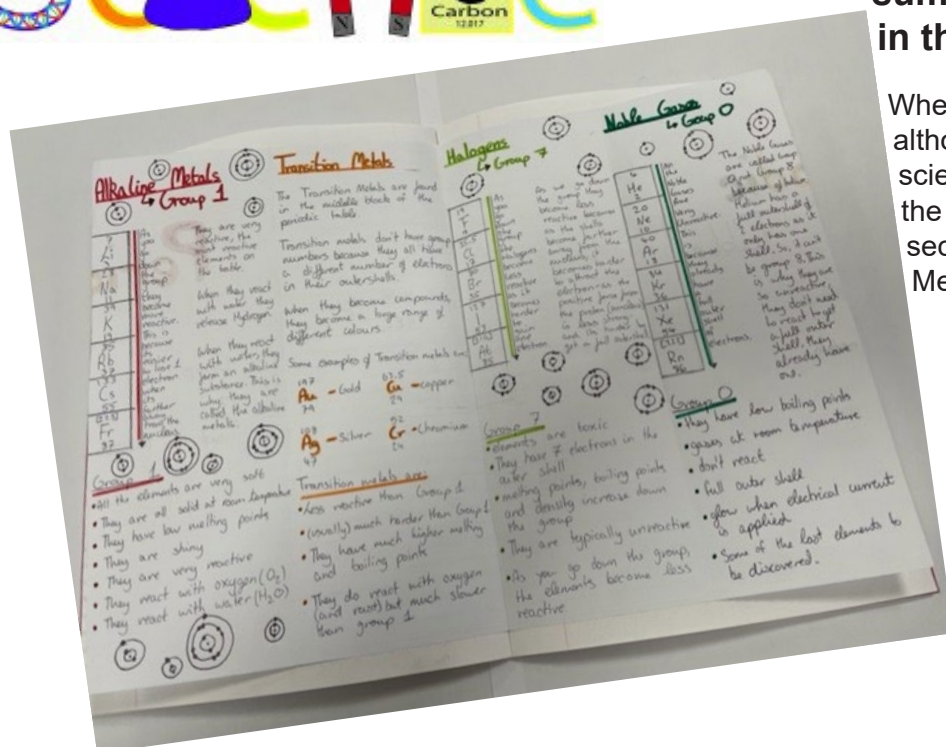 Carbon
12.017
N
S
in th
Whe
altho
scie
the
sec
Me
Alkaline Metals
↳ Group 1
Na
K
Rb
Cs
Fr
87
As
you
go
down
the
group
they
become
more
reactive.
This is
because
it's
easier
to lose 1
electron
when
its
further
away
from the
nucleus
They are very
reactive, the
most reactive
elements on
the table.
When they react
with water they
release Hydrogen.
When they react
with water, they
form an alkaline
substance. This is
why they are
called the alkaline
metals.
Group 1
• All the elements are very soft
• They are all solid at room temperature
• They have low melting points
• They are shiny
• They are very reactive
• They react with oxygen (O₂)
• They react with water (H₂O)
Transition Metals
The Transition Metals are found
in the middle block of the
periodic table.
Transition metals don't have group
numbers because they all have
a different number of electrons
in their outershells.
When they become compounds,
they become a large range of
different colours.
Some examples of Transition metals are
197
Au - Gold
79
63.5
Cu - copper
29
108
Ag - Silver
47
52
Cr - Chromium
24
Transition metals are:
• Less reactive than Group 1
• (usually) much harder than Group 1
• They have much higher melting
and boiling points
• They do react with oxygen
(and rust) but much slower
than group 1
Halogens
↳ Group 7
F
Cl
Br
I
At
85
As
you
go
down
the
group
the
halogens
become
less
reactive
as it
becomes
harder
to
gain
electron
As we go down
the group they
become less
reactive because
as the shells
become further
away from the
nucleus, it
becomes harder
to attract the
electron as the
positive force from
the proton
is less strong
get a full outershell
Group 7
• elements are toxic
• They have 7 electrons in the
outer shell
• melting points, boiling points
and density increase down
the group
• They are typically unreactive
• As you go down the group,
the elements become less
reactive
Noble Gases
↳ Group 0
4
He
2
20
Ne
10
40
Ar
18
84
Kr
36
131
Xe
54
[222]
Rn
86
the
Noble
Gases
are
very
unreactive.
This
is
because
they
already
have
a
full
outer
shell
of
electrons.
The Noble Gases
are called Group
0 not Group 8
because of helium
Helium has a
full outershell of
2 electrons as it
only has one
shell. So, it can't
be group 8. This
is why they are
so unreactive,
they don't need
to react to get
a full outer
shell, they
already have
one.
Group 0
• They have low boiling points
• gases at room temperature
• don't react
• full outer shell
• glow when electrical current
is applied
• Some of the last elements to
be discovered.